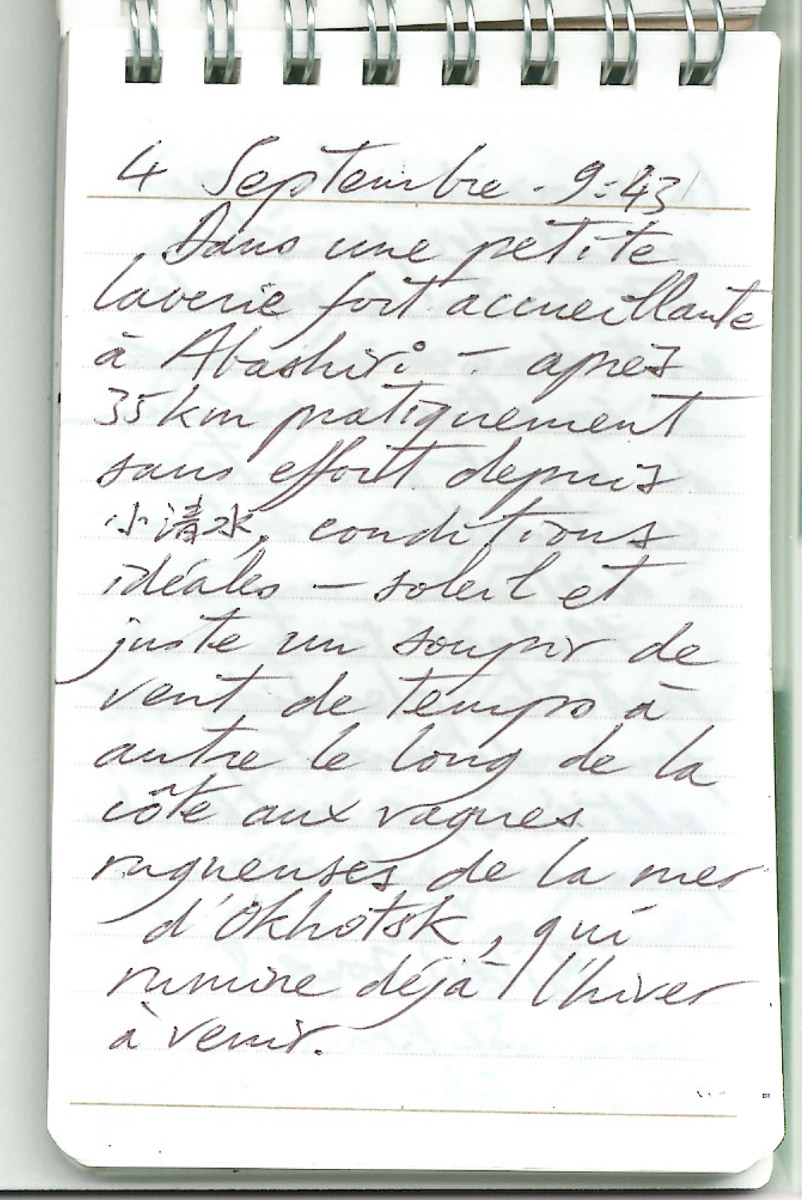 4 Septembre - 9:43
Dans une petite
laverie fort accueillante
à Abashiri - après
35 km pratiquement
sans effort depuis
小清水, conditions
idéales – soleil et
juste un soupir de
vent de temps à
autre le long de la
côte aux vagues
rugueuses de la mer
d'Okhotsk, qui
rumine déjà l'hiver
à venir.